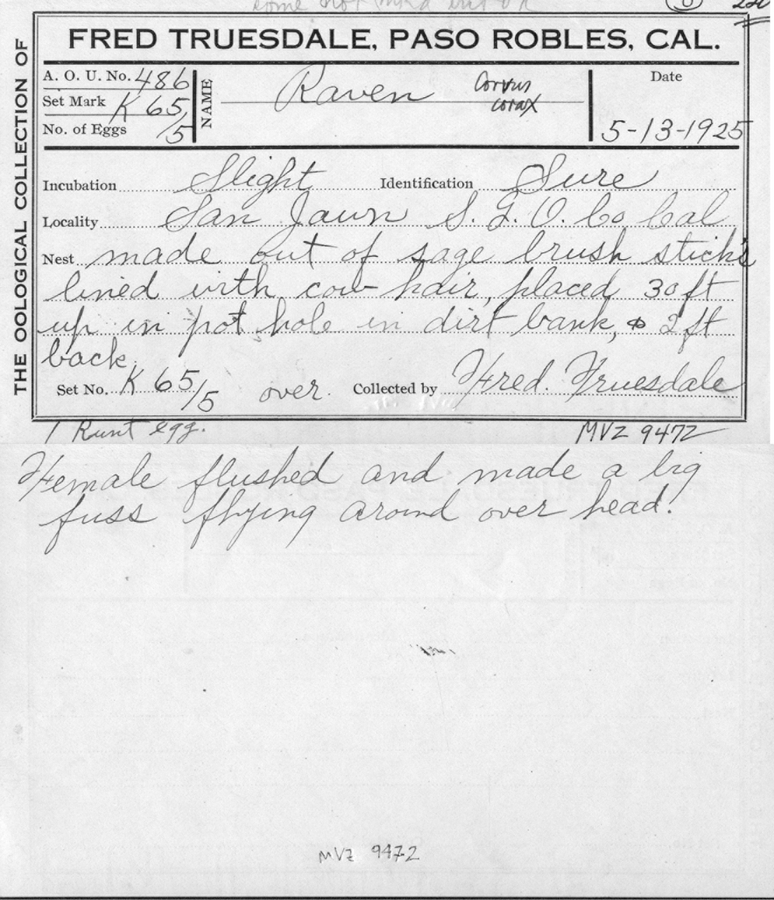 THE OOLOGICAL COLLECTION OF
FRED TRUESDALE, PASO ROBLES, CAL.
A. O. U. No. 486
Set Mark K 65/5
No. of Eggs
NAME
Raven
Corvus
corax
Date
5-13-1925
Incubation Slight Identification Sure
Locality San Jawn S. L. O. Co Cal
Nest made out of sage brush sticks
lined with cow hair, placed 30 ft
up in pot hole in dirt bank, 2 ft
back.
Set No. K 65/5 over. Collected by Fred. Truesdale
1 Runt egg. MVZ 9472
Female flushed and made a big
fuss flying around over head.
MVZ 9472